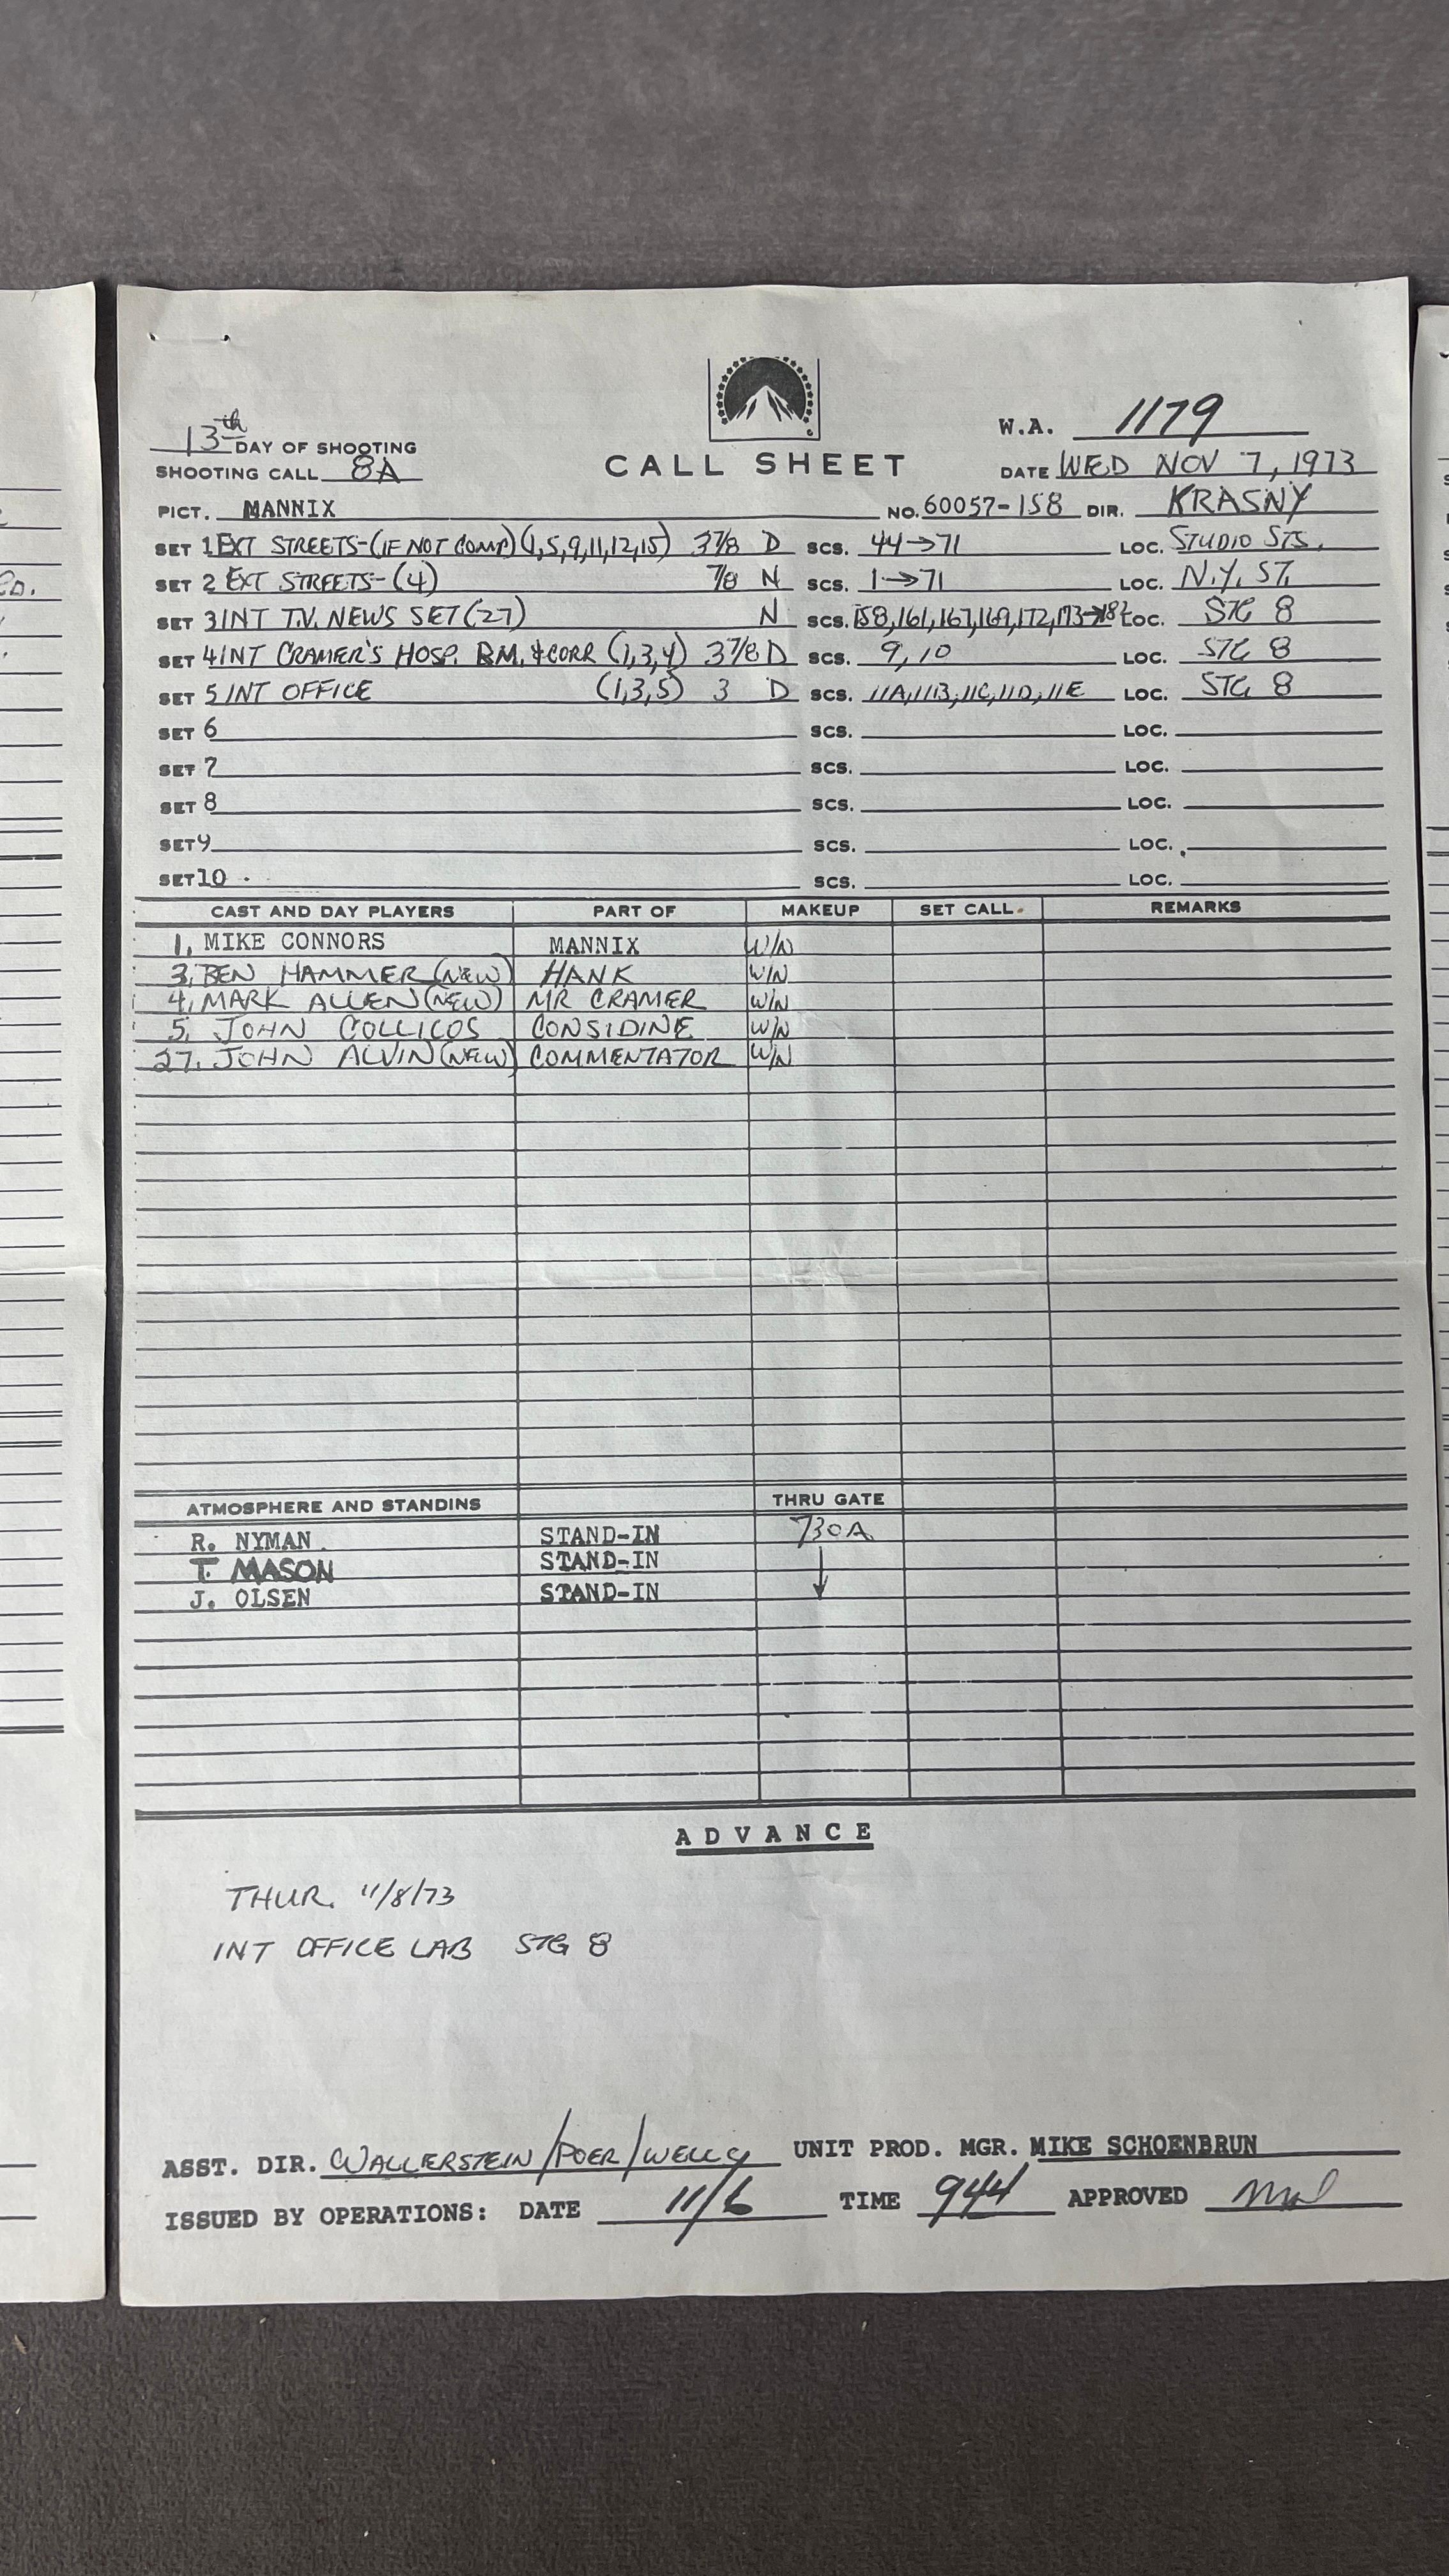 13th DAY OF SHOOTING
SHOOTING CALL 8A
CALL SHEET
W.A. 1179
DATE WED NOV 7, 1973
PICT. MANNIX NO. 60057-158 DIR. KRASNY
SET 1 EXT STREETS-(IF NOT COMP)(1,5,9,11,12,15) 3 7/8 D SCS. 44→71 LOC. STUDIO STS.
SET 2 EXT STREETS-(4) 7/8 N SCS. 1→71 LOC. N.Y. ST.
SET 3 INT T.V. NEWS SET (27) N SCS. 158,161,167,169,172,173→182 LOC. STG 8
SET 4 INT CRAMER'S HOSP. RM. & CORR (1,3,4) 3 7/8 D SCS. 9,10 LOC. STG 8
SET 5 INT OFFICE (1,3,5) 3 D SCS. 11A,11B,11C,11D,11E LOC. STG 8
SET 6 SCS. LOC.
SET 7 SCS. LOC.
SET 8 SCS. LOC.
SET 9 SCS. LOC.
SET 10 SCS. LOC.
CAST AND DAY PLAYERS PART OF MAKEUP SET CALL REMARKS
1. MIKE CONNORS MANNIX W/N
3. BEN HAMMER (NEW) HANK W/N
4. MARK ALLEN (NEW) MR CRAMER W/N
5. JOHN COLLICOS CONSIDINE W/N
27. JOHN ALVIN (NEW) COMMENTATOR W/N
ATMOSPHERE AND STANDINS THRU GATE
R. NYMAN STAND-IN 730A
T. MASON STAND-IN
J. OLSEN STAND-IN
ADVANCE
THUR. 11/8/73
INT OFFICE LAB STG 8
ASST. DIR. WALLERSTEIN/POER/ UNIT PROD. MGR. MIKE SCHOENBRUN
ISSUED BY OPERATIONS: DATE 11/6 TIME 944 APPROVED